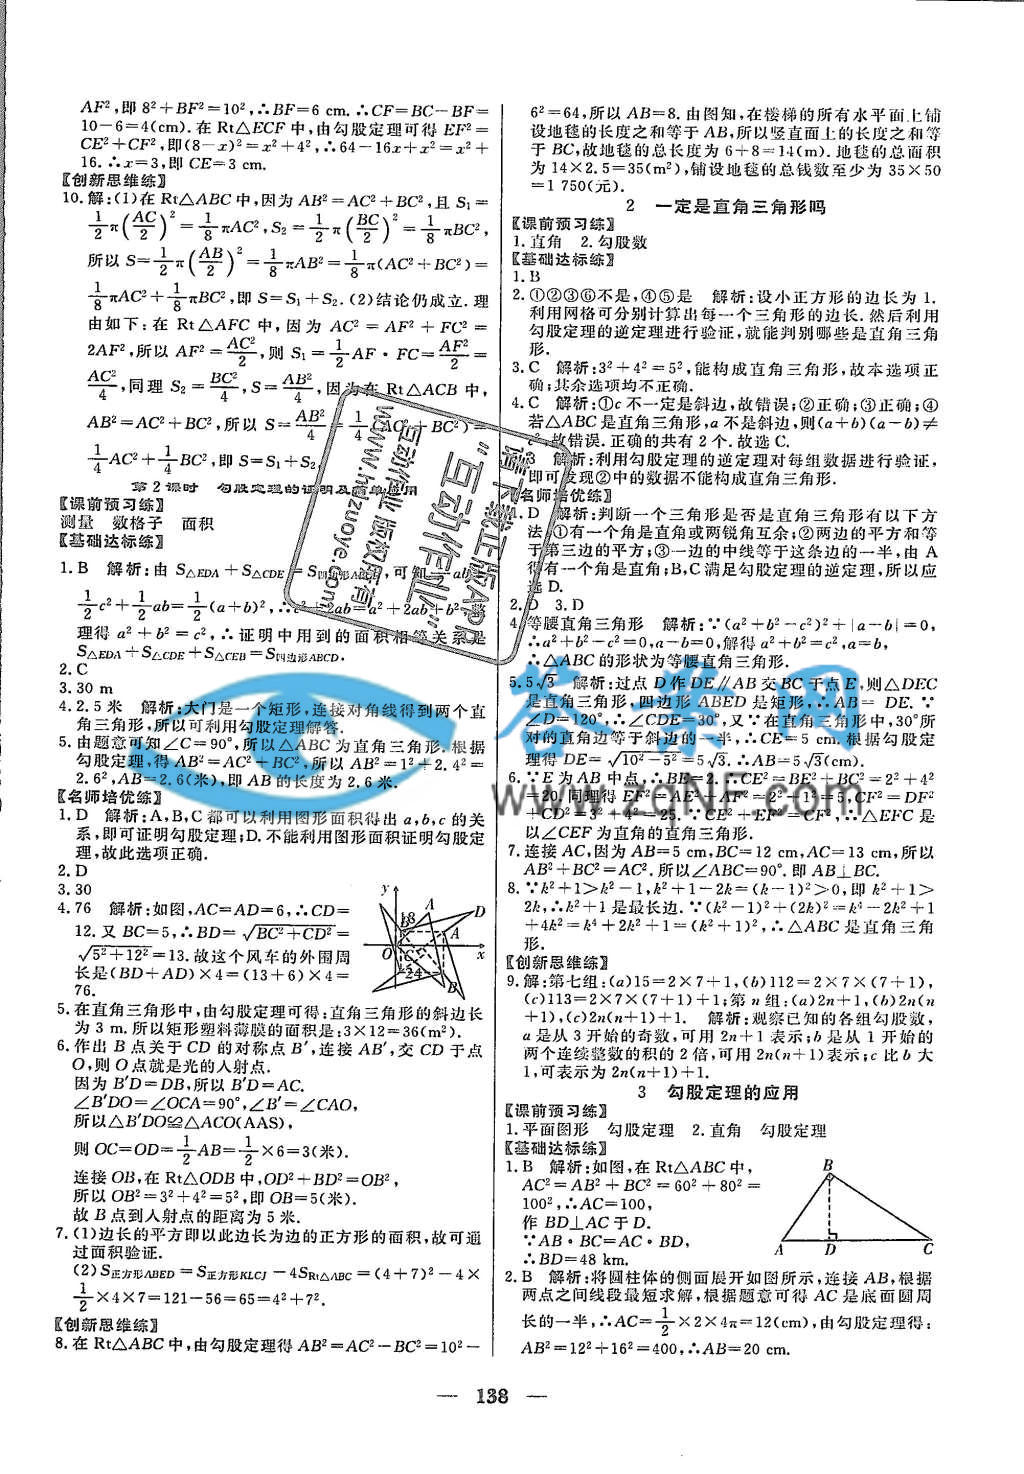 AF²,即 8²+BF²=10²,∴BF=6 cm.∴CF=BC-BF=
10-6=4(cm).在 Rt△ECF 中,由勾股定理可得 EF²=
CE²+CF²,即(8-x)²=x²+4²,∴64-16x+x²=x²+
16.∴x=3,即 CE=3 cm.
【创新思维练】
10.解:(1)在 Rt△ABC 中,因为 AB²=AC²+BC²,且 S₁=
1/2 π(AC/2)²=1/8 πAC²,S₂=1/2 π(BC/2)²=1/8 πBC²,
所以 S=1/2 π(AB/2)²=1/8 πAB²=1/8 π(AC²+BC²)=
1/8 πAC²+1/8 πBC²,即 S=S₁+S₂.(2)结论仍成立.理
由如下:在 Rt△AFC 中,因为 AC²=AF²+FC²=
2AF²,所以 AF²=AC²/2,则 S₁=1/2 AF·FC=AF²/2=
AC²/4,同理 S₂=BC²/4,S=AB²/4,因为在 Rt△ACB 中,
AB²=AC²+BC²,所以 S=AB²/4=1/4(AC²+BC²)=
1/4 AC²+1/4 BC²,即 S=S₁+S₂.
第 2 课时 勾股定理的证明及简单应用
【课前预习练】
测量 数格子 面积
【基础达标练】
1.B 解析:由 S△EDA+S△CDE=S四边形,可知 1/2 ab+
1/2 c²+1/2 ab=1/2(a+b)²,∴c²+2ab=a²+2ab+b²,整
理得 a²+b²=c²,∴证明中用到的面积相等关系是
S△EDA+S△CDE+S△CEB=S四边形ABCD.
2.C
3.30 m
4.2.5 米 解析:大门是一个矩形,连接对角线得到两个直
角三角形,所以可利用勾股定理解答.
5.由题意可知∠C=90°,所以△ABC 为直角三角形.根据
勾股定理,得 AB²=AC²+BC²,所以 AB²=1²+2.4²=
2.6²,AB=2.6(米),即 AB 的长度为 2.6 米.
【名师培优练】
1.D 解析:A,B,C 都可以利用图形面积得出 a,b,c 的关
系,即可证明勾股定理;D.不能利用图形面积证明勾股定
理,故此选项正确.
2.D
3.30
4.76 解析:如图,AC=AD=6,∴CD=
12.又 BC=5,∴BD=√(BC²+CD²)=
√(5²+12²)=13.故这个风车的外围周
长是(BD+AD)×4=(13+6)×4=
76.
y
18
A
D
A
O
C
x
24
B
5.在直角三角形中,由勾股定理可得:直角三角形的斜边长
为 3 m.所以矩形塑料薄膜的面积是:3×12=36(m²).
6.作出 B 点关于 CD 的对称点 B′,连接 AB′,交 CD 于点
O,则 O 点就是光的入射点.
因为 B′D=DB,所以 B′D=AC.
∠B′DO=∠OCA=90°,∠B′=∠CAO,
所以△B′DO≌△ACO(AAS),
则 OC=OD=1/2 AB=1/2×6=3(米).
连接 OB,在 Rt△ODB 中,OD²+BD²=OB²,
所以 OB²=3²+4²=5²,即 OB=5(米).
故 B 点到入射点的距离为 5 米.
7.(1)边长的平方即以此边长为边的正方形的面积,故可通
过面积验证.
(2)S正方形ABED=S正方形KLCJ-4SRt△ABC=(4+7)²-4×
1/2×4×7=121-56=65=4²+7².
【创新思维练】
8.在 Rt△ABC 中,由勾股定理得 AB²=AC²-BC²=10²-
6²=64,所以 AB=8.由图知,在楼梯的所有水平面上铺
设地毯的长度之和等于 AB,所以竖直面上的长度之和等
于 BC,故地毯的总长度为 6+8=14(m).地毯的总面积
为 14×2.5=35(m²),铺设地毯的总钱数至少为 35×50
=1 750(元).
2 一定是直角三角形吗
【课前预习练】
1.直角 2.勾股数
【基础达标练】
1.B
2.①②③⑥不是,④⑤是 解析:设小正方形的边长为 1.
利用网格可分别计算出每一个三角形的边长.然后利用
勾股定理的逆定理进行验证,就能判别哪些是直角三角
形.
3.C 解析:3²+4²=5²,能构成直角三角形,故本选项正
确;其余选项均不正确.
4.C 解析:①c 不一定是斜边,故错误;②正确;③正确;④
若△ABC 是直角三角形,a 不是斜边,则(a+b)(a-b)≠
c²,故错误.正确的共有 2 个.故选 C.
3 解析:利用勾股定理的逆定理对每组数据进行验证,
即可发现②中的数据不能构成直角三角形.
【名师培优练】
1.D 解析:判断一个三角形是否是直角三角形有以下方
法:①有一个角是直角或两锐角互余;②两边的平方和等
于第三边的平方;③一边的中线等于这条边的一半,由 A
得有一个角是直角;B,C 满足勾股定理的逆定理,所以应
选 D.
2.D 3.D
4.等腰直角三角形 解析:∵(a²+b²-c²)²+|a-b|=0,
∴a²+b²-c²=0,a-b=0,解得 a²+b²=c²,a=b,
∴△ABC 的形状为等腰直角三角形.
5.5√3 解析:过点 D 作 DE∥AB 交 BC 于点 E,则△DEC
是直角三角形,四边形 ABED 是矩形,∴AB=DE.∵
∠D=120°,∴∠CDE=30°,又∵在直角三角形中,30°所
对的直角边等于斜边的一半,∴CE=5 cm.根据勾股定
理得 DE=√(10²-5²)=5√3.∴AB=5√3(cm).
6.∵E 为 AB 中点,∴BE=2.∴CE²=BE²+BC²=2²+4²
=20.同理得 EF²=AE²+AF²=2²+1²=5,CF²=DF²
+CD²=3²+4²=25.∵CE²+EF²=CF²,∴△EFC 是
以∠CEF 为直角的直角三角形.
7.连接 AC,因为 AB=5 cm,BC=12 cm,AC=13 cm,所以
AB²+BC²=AC².所以∠ABC=90°.即 AB⊥BC.
8.∵k²+1>k²-1,k²+1-2k=(k-1)²>0,即 k²+1>
2k,∴k²+1 是最长边.∵(k²-1)²+(2k)²=k⁴-2k²+1
+4k²=k⁴+2k²+1=(k²+1)²,∴△ABC 是直角三角
形.
【创新思维练】
9.解:第七组:(a)15=2×7+1,(b)112=2×7×(7+1),
(c)113=2×7×(7+1)+1;第 n 组:(a)2n+1,(b)2n(n
+1),(c)2n(n+1)+1. 解析:观察已知的各组勾股数,
a 是从 3 开始的奇数,可用 2n+1 表示;b 是从 1 开始的
两个连续整数的积的 2 倍,可用 2n(n+1)表示;c 比 b 大
1,可表示为 2n(n+1)+1.
3 勾股定理的应用
【课前预习练】
1.平面图形 勾股定理 2.直角 勾股定理
【基础达标练】
1.B 解析:如图,在 Rt△ABC 中,
AC²=AB²+BC²=60²+80²=
100²,∴AC=100,
作 BD⊥AC 于 D.
∵AB·BC=AC·BD,
∴BD=48 km.
B
A
D
C
2.B 解析:将圆柱体的侧面展开如图所示,连接 AB,根据
两点之间线段最短求解,根据题意可得 AC 是底面圆周
长的一半,∴AC=1/2×2×4π=12(cm),由勾股定理得:
AB²=12²+16²=400,∴AB=20 cm.
— 138 —
请下载正版APP
“互动作业”
互动作业 版权所有
www.hdzuoye.com
答案网
www.zqnf.com